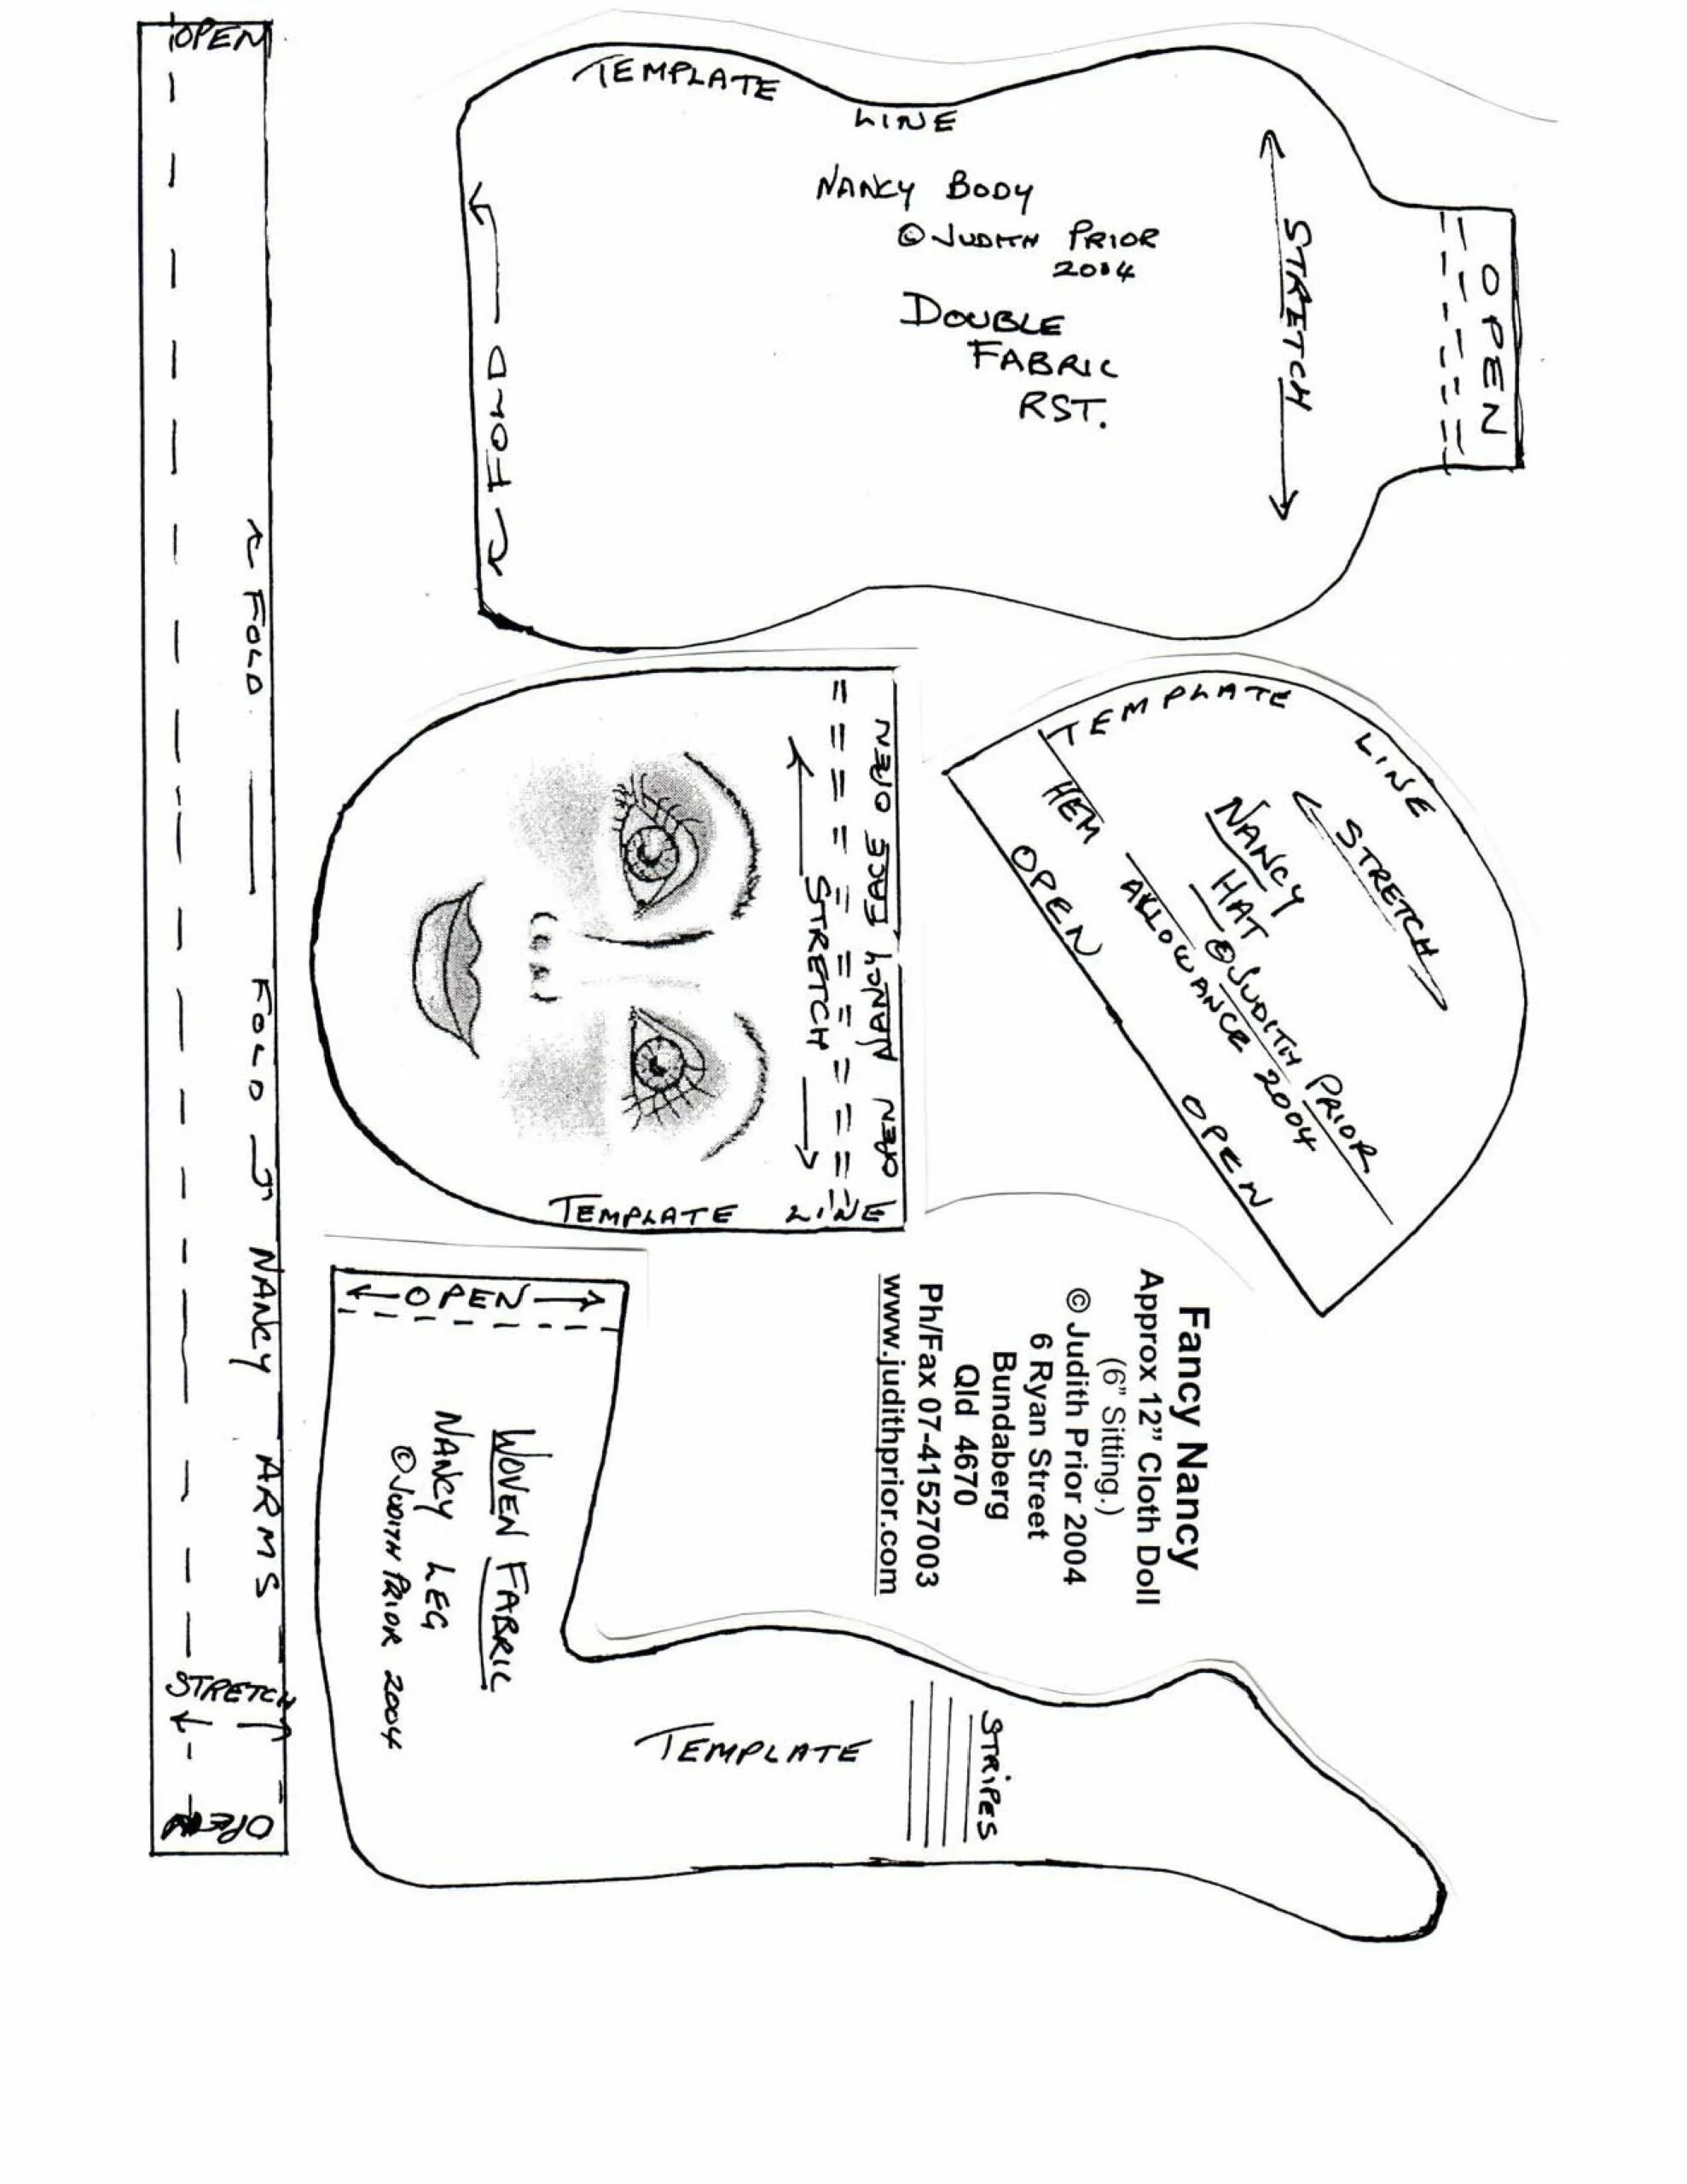 OPEN
← FOLD —— FOLD → NANCY ARMS
STRETCH
OPEN
TEMPLATE
LINE
NANCY BODY
© JUDITH PRIOR
2004
DOUBLE
FABRIC
RST.
← FOLD →
STRETCH
OPEN
OPEN NANCY FACE OPEN
STRETCH
TEMPLATE LINE
TEMPLATE
LINE
STRETCH
NANCY
HAT © JUDITH PRIOR
HEM ALLOWANCE 2004
OPEN OPEN
Fancy Nancy
Approx 12” Cloth Doll
(6” Sitting.)
© Judith Prior 2004
6 Ryan Street
Bundaberg
Qld 4670
Ph/Fax 07-41527003
www.judithprior.com
← OPEN →
WOVEN FABRIC
NANCY LEG
© JUDITH PRIOR 2004
TEMPLATE
STRIPES